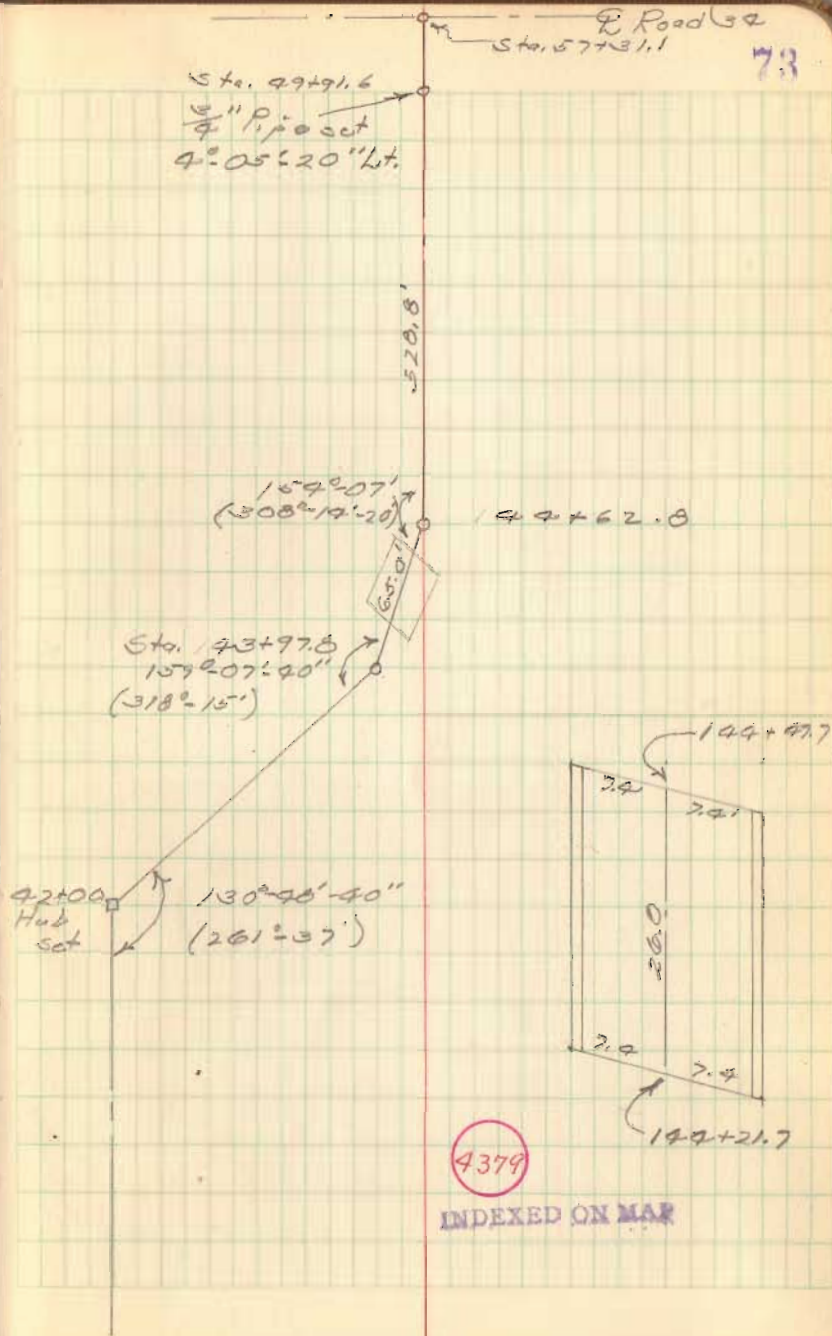 ℄ Road 34
Sta. 57+31.1
73
Sta. 49+91.6
3/4" Pipe set
4°-05'-20" Lt.
528.8'
154°-07'
(308°-14'-20")
144+62.8
65.0'
Sta. 143+97.8
159°-07'-40"
(318°-15')
144+47.7
7.4
7.4'
42+00
Hub
set
130°-48'-40"
(261°-37')
26.0
7.4
7.4
144+21.7
4379
INDEXED ON MAP